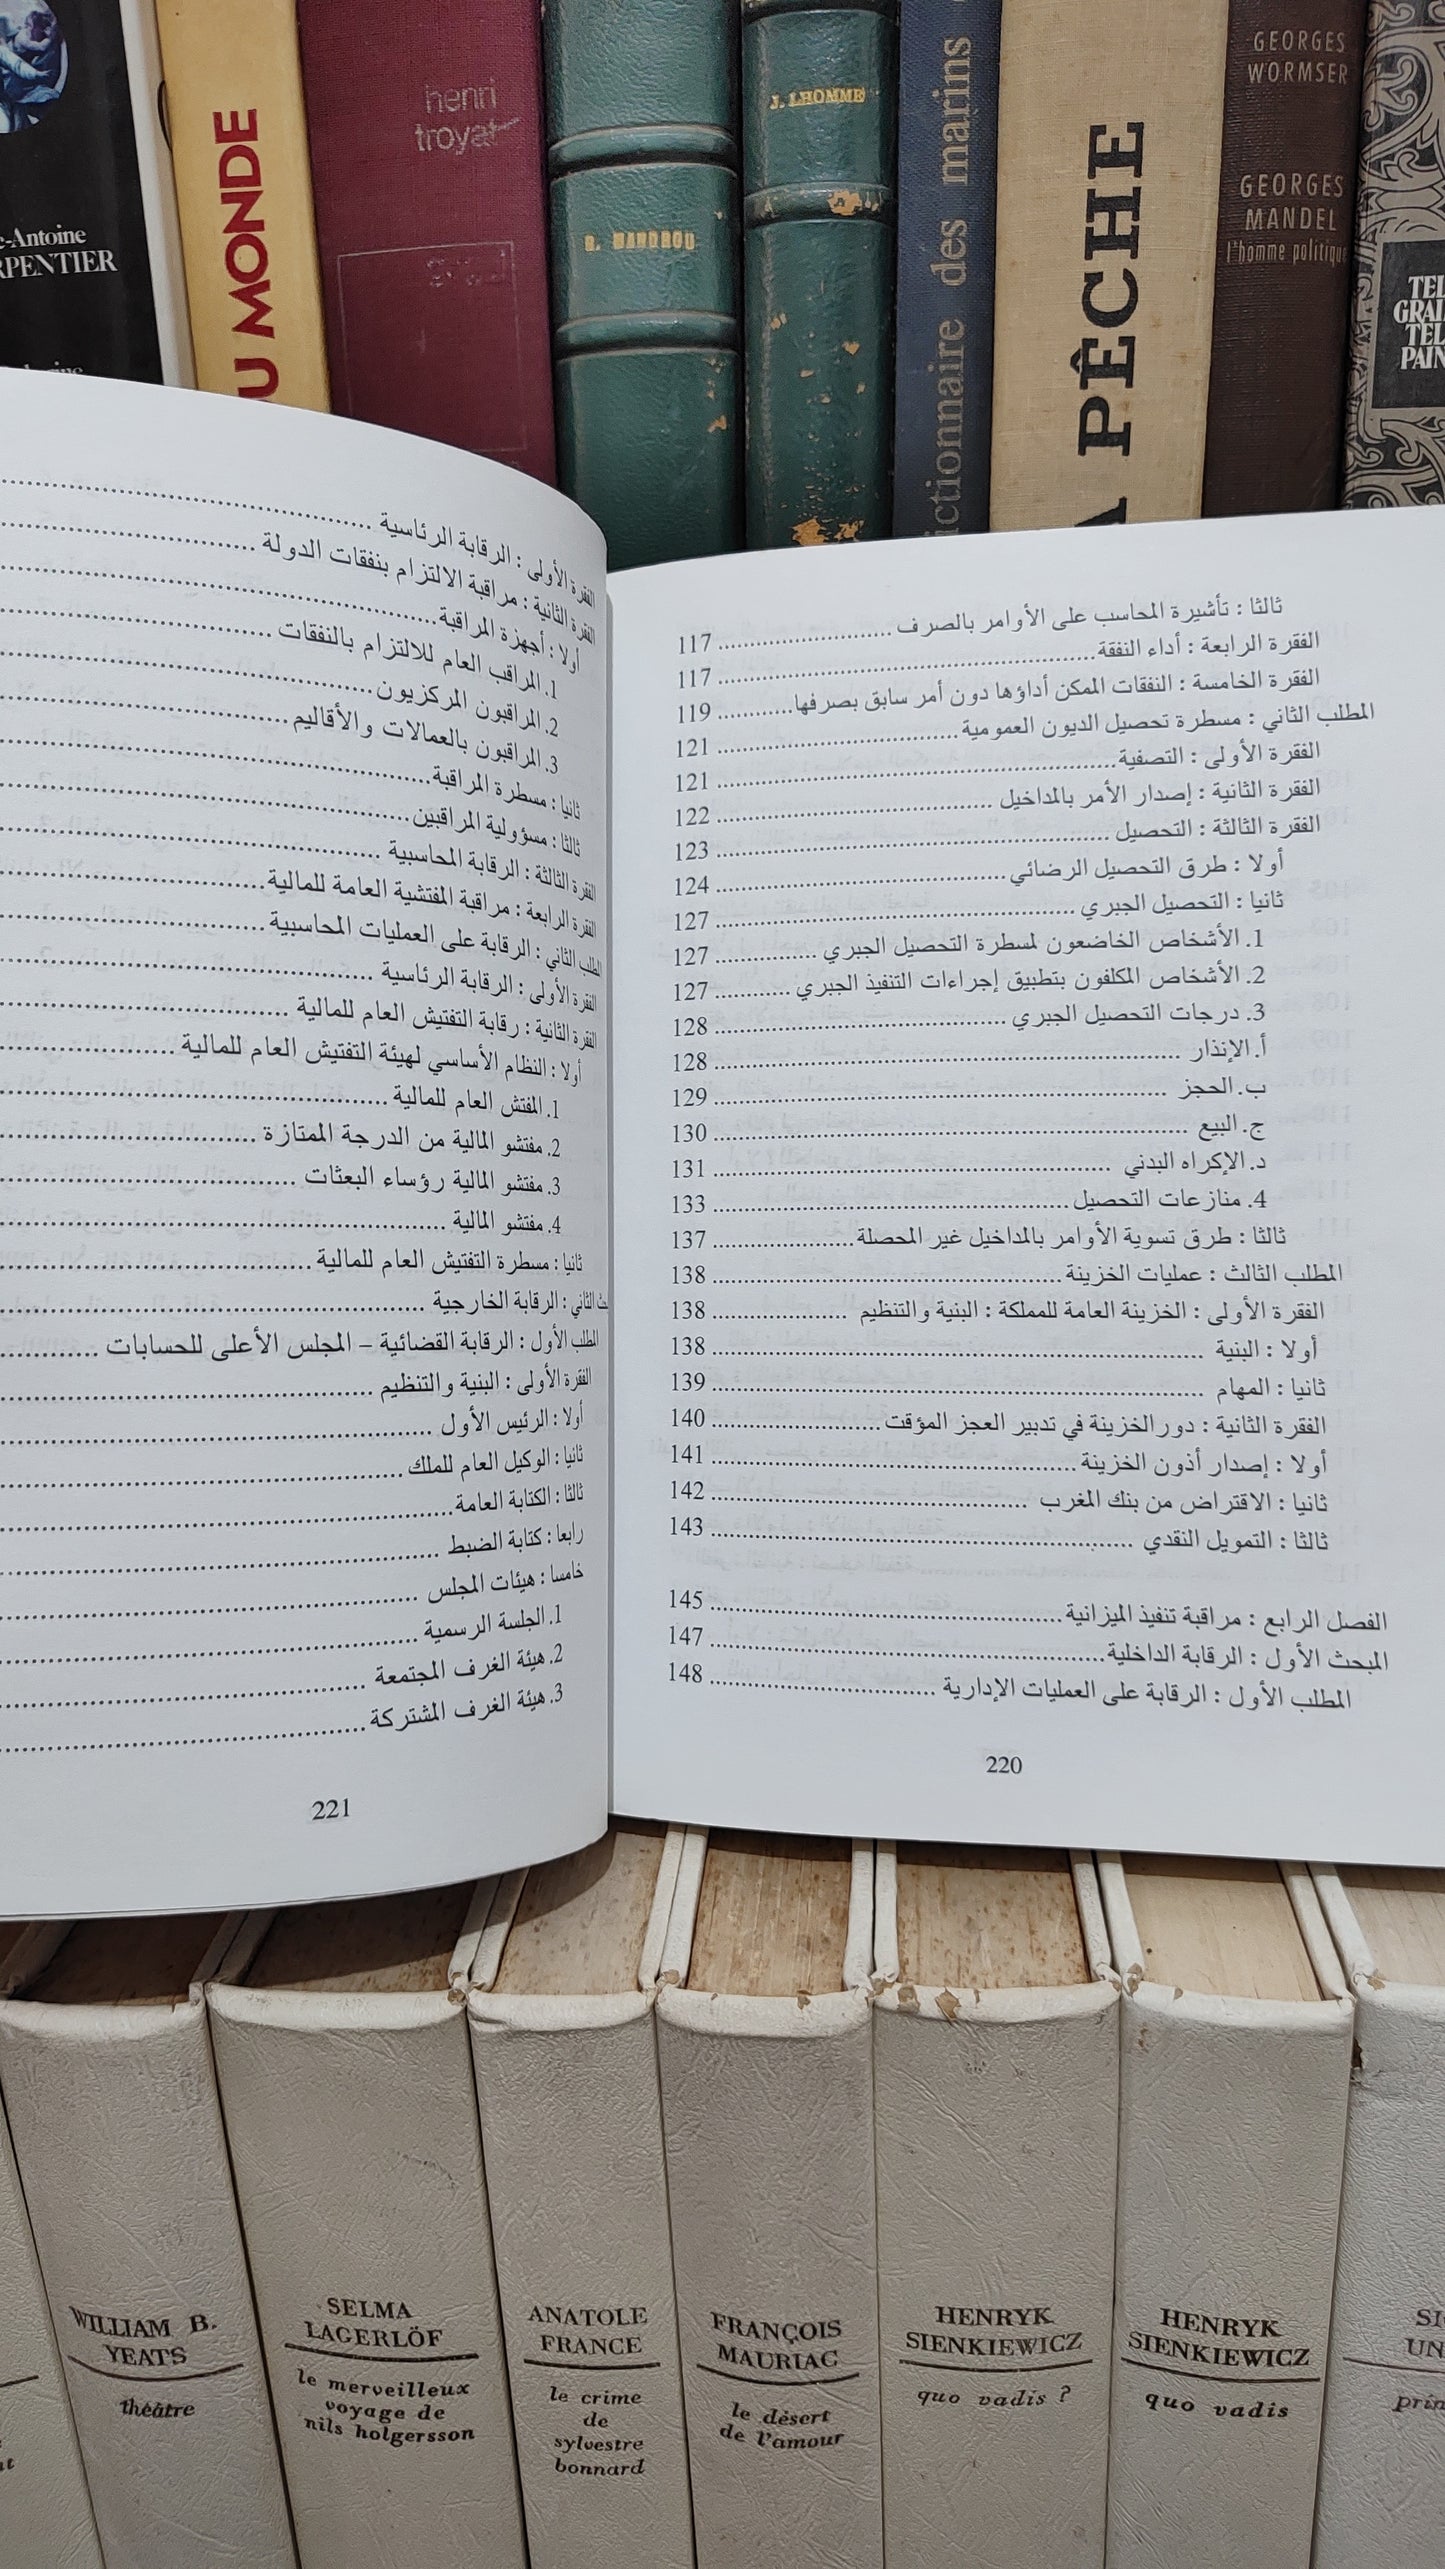 e-Antoine
RPENTIER
U MONDE
henri
troyat
R. MANDROU
J. LHOMME
ictionnaire des marins
A PÊCHE
GEORGES
WORMSER
GEORGES
MANDEL
l'homme politique
TEL
GRAI
TEL
PAIN
ثالثا : تأشيرة المحاسب على الأوامر بالصرف ............................. 117
الفقرة الرابعة : أداء النفقة............................................................. 117
الفقرة الخامسة : النفقات الممكن أداؤها دون أمر سابق بصرفها............ 119
المطلب الثاني : مسطرة تحصيل الديون العمومية....................................... 121
الفقرة الأولى : التصفية................................................................ 121
الفقرة الثانية : إصدار الأمر بالمداخيل ............................................. 122
الفقرة الثالثة : التحصيل ............................................................... 123
أولا : طرق التحصيل الرضائي .............................................. 124
ثانيا : التحصيل الجبري ......................................................... 127
1. الأشخاص الخاضعون لمسطرة التحصيل الجبري ................ 127
2. الأشخاص المكلفون بتطبيق إجراءات التنفيذ الجبري ............ 127
3. درجات التحصيل الجبري .............................................. 128
أ. الإنذار ........................................................................ 128
ب. الحجز ...................................................................... 129
ج. البيع ......................................................................... 130
د. الإكراه البدني ............................................................ 131
4. منازعات التحصيل....................................................... 133
ثالثا : طرق تسوية الأوامر بالمداخيل غير المحصلة...................... 137
المطلب الثالث : عمليات الخزينة....................................................... 138
الفقرة الأولى : الخزينة العامة للمملكة : البنية والتنظيم .................... 138
أولا : البنية ........................................................................... 138
ثانيا : المهام .......................................................................... 139
الفقرة الثانية : دور الخزينة في تدبير العجز المؤقت.......................... 140
أولا : إصدار أذون الخزينة........................................................ 141
ثانيا : الاقتراض من بنك المغرب ................................................ 142
ثالثا : التمويل النقدي ................................................................ 143
الفصل الرابع : مراقبة تنفيذ الميزانية...................................................... 145
المبحث الأول : الرقابة الداخلية............................................................. 147
المطلب الأول : الرقابة على العمليات الإدارية ..................................... 148
220
الفقرة الأولى : الرقابة الرئاسية ............................
الفقرة الثانية : مراقبة الالتزام بنفقات الدولة ............................
أولا : أجهزة المراقبة............................
1. المراقب العام للالتزام بالنفقات ............................
2. المراقبون المركزيون............................
3. المراقبون بالعمالات والأقاليم ............................
ثانيا : مسطرة المراقبة............................
ثالثا : مسؤولية المراقبين............................
الفقرة الثالثة : الرقابة المحاسبية ............................
الفقرة الرابعة : مراقبة المفتشية العامة للمالية............................
المطلب الثاني : الرقابة على العمليات المحاسبية............................
الفقرة الأولى : الرقابة الرئاسية ............................
الفقرة الثانية : رقابة التفتيش العام للمالية ............................
أولا : النظام الأساسي لهيئة التفتيش العام للمالية ............................
1. المفتش العام للمالية ............................
2. مفتشو المالية من الدرجة الممتازة ............................
3. مفتشو المالية رؤساء البعثات ............................
4. مفتشو المالية ............................
ثانيا : مسطرة التفتيش العام للمالية ............................
حث الثاني : الرقابة الخارجية ............................
المطلب الأول : الرقابة القضائية – المجلس الأعلى للحسابات ............
الفقرة الأولى : البنية والتنظيم ............................
أولا : الرئيس الأول ............................
ثانيا : الوكيل العام للملك............................
ثالثا : الكتابة العامة............................
رابعا : كتابة الضبط ............................
خامسا : هيئات المجلس ............................
1. الجلسة الرسمية ............................
2. هيئة الغرف المجتمعة ............................
3. هيئة الغرف المشتركة............................
221
WILLIAM B.
YEATS
théâtre
SELMA
LAGERLÖF
le merveilleux
voyage de
nils holgersson
ANATOLE
FRANCE
le crime
de
sylvestre
bonnard
FRANÇOIS
MAURIAC
le désert
de l'amour
HENRYK
SIENKIEWICZ
quo vadis ?
HENRYK
SIENKIEWICZ
quo vadis
SI
UN
prin